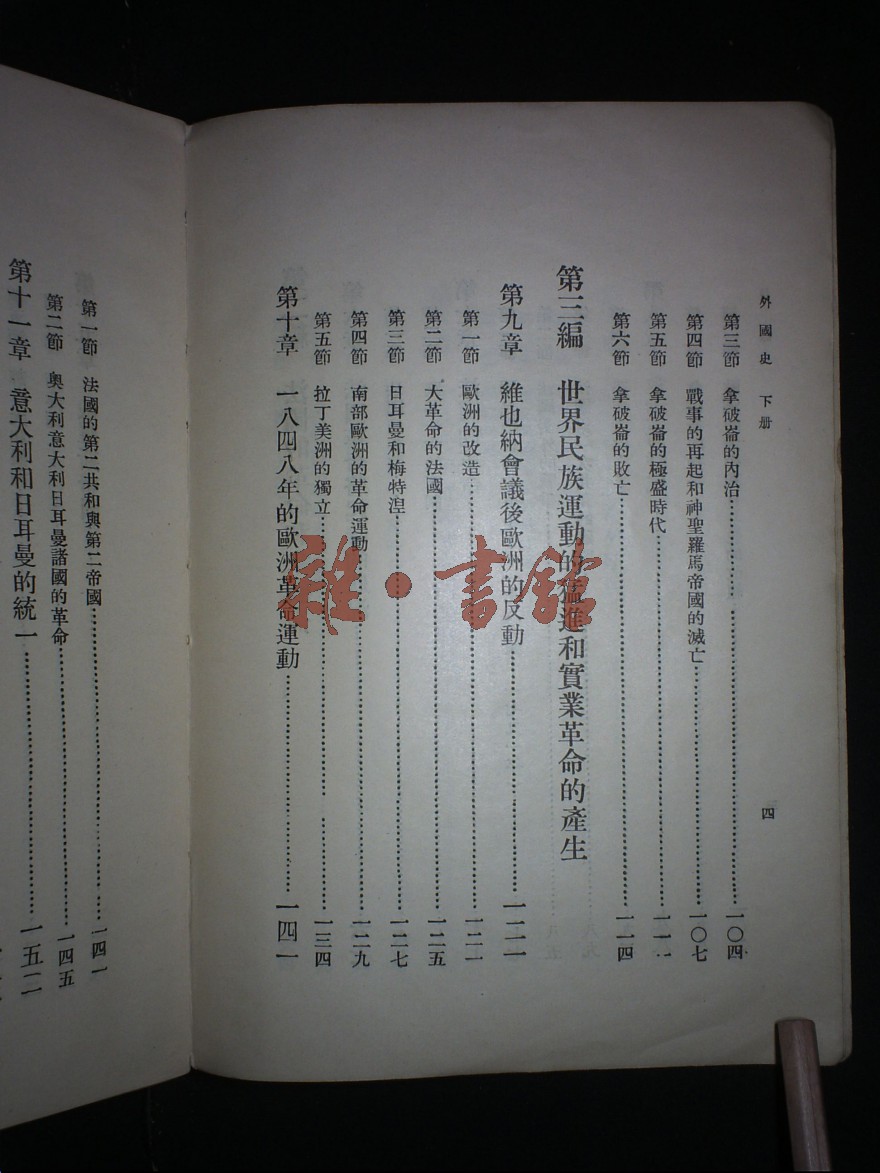 外國史 下册
四
第三節 拿破崙的內治……一〇四
第四節 戰事的再起和神聖羅馬帝國的滅亡……一〇七
第五節 拿破崙的極盛時代……一一一
第六節 拿破崙的敗亡……一一四
第三編 世界民族運動的猛進和實業革命的產生
第九章 維也納會議後歐洲的反動……一二一
第一節 歐洲的改造……一二一
第二節 大革命的法國……一二五
第三節 日耳曼和梅特涅……一二七
第四節 南部歐洲的革命運動……一二九
第五節 拉丁美洲的獨立……一三四
第十章 一八四八年的歐洲革命運動……一四一
第一節 法國的第二共和與第二帝國……一四一
第二節 奧大利意大利日耳曼諸國的革命……一四五
第十一章 意大利和日耳曼的統一……一五二
雜·書館